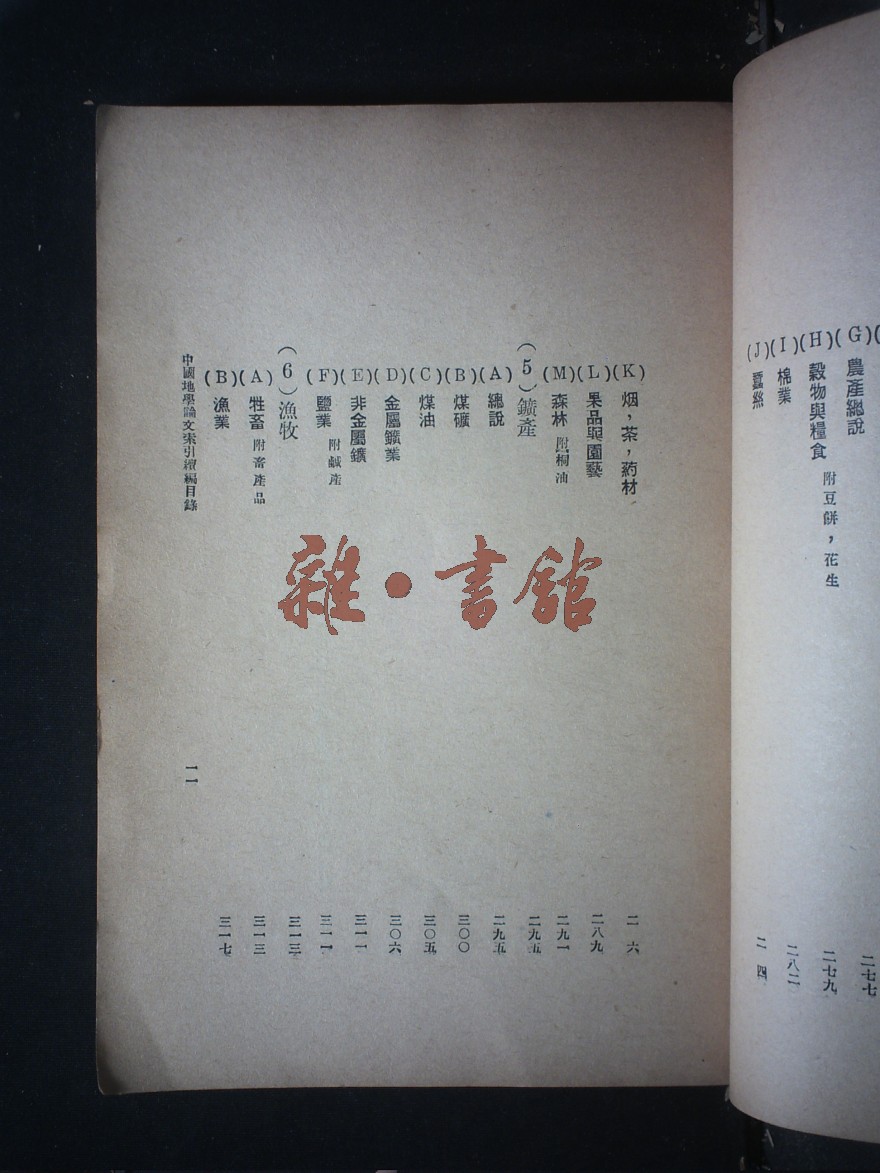 (G)農產總說 二七七
(H)穀物與糧食 附豆餅,花生 二七九
(I)棉業 二八二
(J)蠶絲 二 四
(K)烟,茶,葯材 二 六
(L)果品與園藝 二八九
(M)森林 附桐油 二九一
(5)鑛產 二九五
(A)總說 二九五
(B)煤礦 三〇〇
(C)煤油 三〇五
(D)金屬鑛業 三〇六
(E)非金屬鑛 三一一
(F)鹽業 附鹹產 三一一
(6)漁牧 三一三
(A)牲畜 附畜產品 三一三
(B)漁業 三一七
中國地學論文索引續編目錄 一一
雜·書館